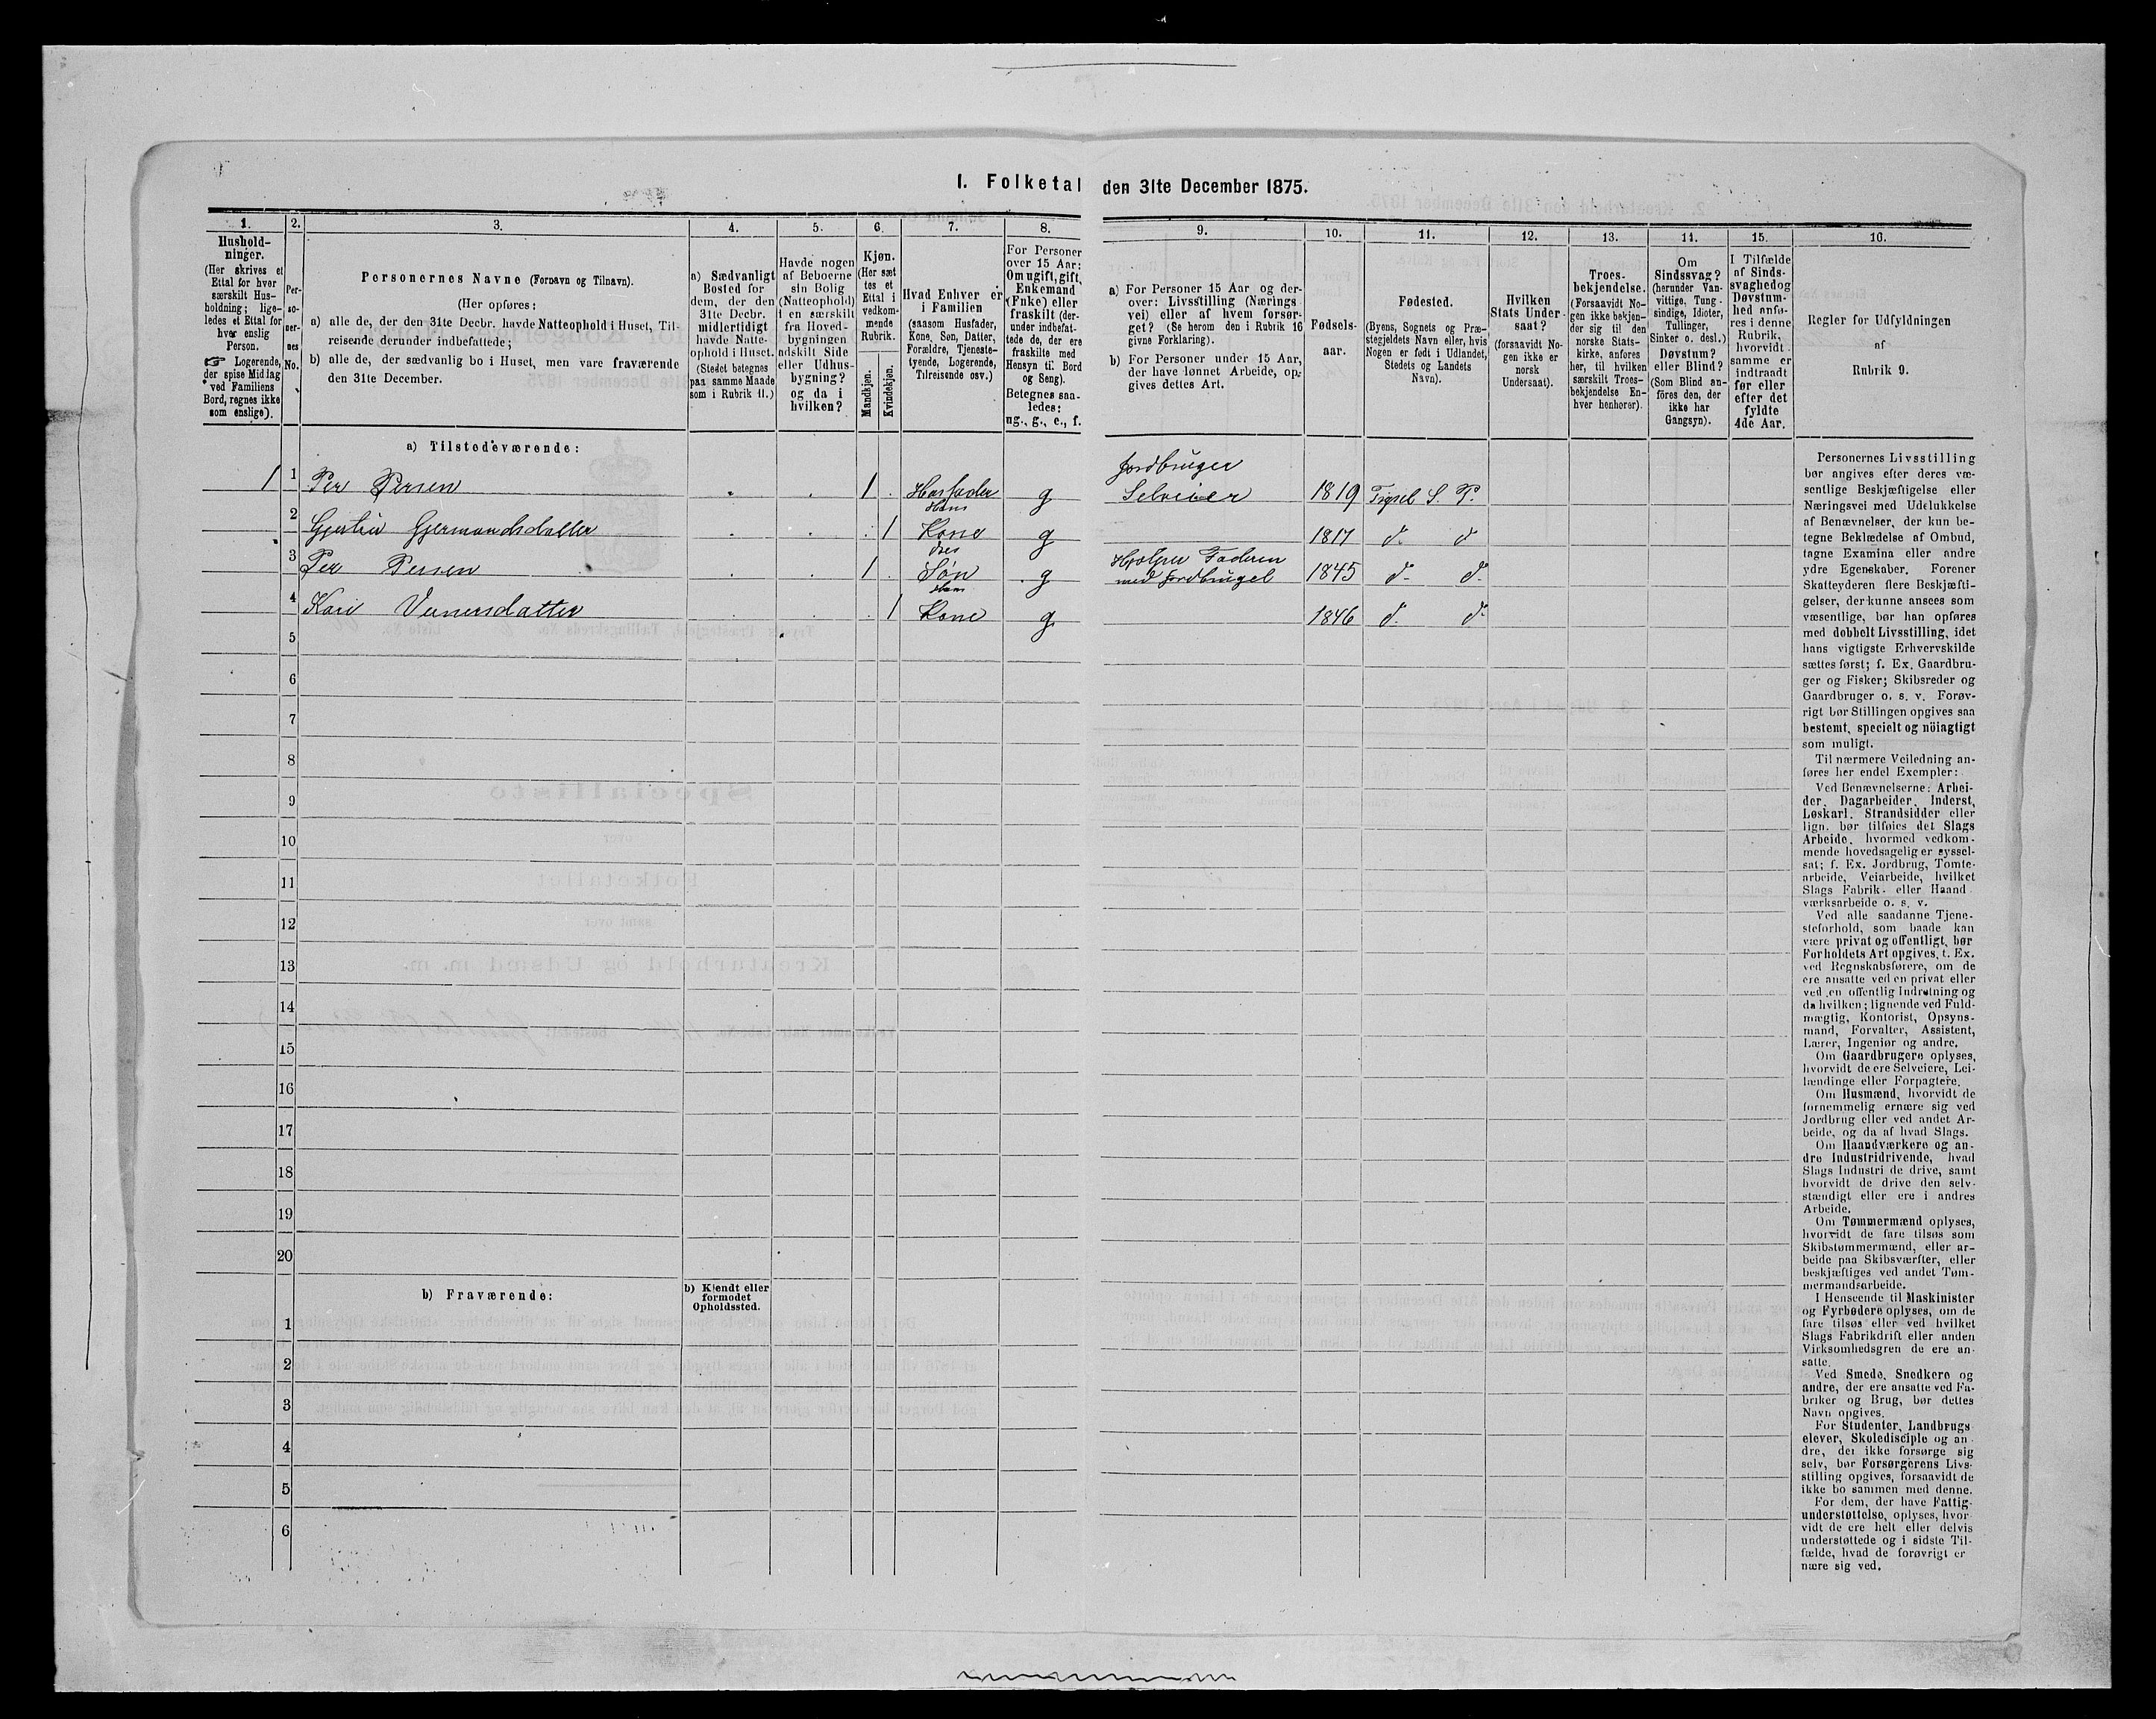 1. Folketal den 31te December 1875.
1.
Hushold-
ninger.
(Her skrives et
Ettal for hver
særskilt Hus-
holdning; lige-
ledes et Ettal for
hver enslig
Person.
☞ Logerende,
der spise Middag
ved Familiens
Bord, regnes ikke
som enslige).
2.
Per-
so-
ner-
nes
No.
3.
Personernes Navne (Fornavn og Tilnavn).
(Her opføres:
a) alle de, der den 31te Decbr. havde Natteophold i Huset, Til-
reisende derunder indbefattede;
b) alle de, der sædvanlig bo i Huset, men vare fraværende
den 31te December.
4.
a) Sædvanligt
Bosted for
dem, der den
31te Decbr.
midlertidigt
havde Natte-
ophold i Huset.
(Stedet betegnes
paa samme Maade
som i Rubrik 11.)
5.
Havde nogen
af Beboerne
sin Bolig
(Natteophold)
i en særskilt
fra Hoved-
bygningen
adskilt Side
eller Udhus-
bygning?
og da i
hvilken?
6.
Kjøn.
(Her sæt
tes et
Ettal i
vedkom-
mende
Rubrik.
Mandkjøn.
Kvindekjøn.
7.
Hvad Enhver er
i Familien
(saasom Husfader,
Kone, Søn, Datter,
Forældre, Tjeneste-
tyende, Logerende,
Tilreisende osv.)
8.
For Personer
over 15 Aar:
Om ugift, gift,
Enkemand
(Enke) eller
fraskilt (der-
under indbefat-
tede de, der ere
fraskilte med
Hensyn til Bord
og Seng).
Betegnes saa-
ledes:
ug., g., e., f.
9.
a) For Personer 15 Aar og der-
over: Livsstilling (Nærings
vei) eller af hvem forsør-
get? (Se herom den i Rubrik 16
givne Forklaring).
b) For Personer under 15 Aar,
der have lønnet Arbeide, op-
gives dettes Art.
10.
Fødsels-
aar.
11.
Fødested.
(Byens, Sognets og Præ-
stegjeldets Navn eller, hvis
Nogen er født i Udlandet,
Stedets og Landets
Navn).
12.
Hvilken
Stats Under-
saat?
(forsaavidt No-
gen ikke er
norsk
Undersaat).
13.
Troes-
bekjendelse.
(Forsaavidt No-
gen ikke bekjen-
der sig til den
norske Stats-
kirke, anføres
her, til hvilken
særskilt Troes-
bekjendelse En-
hver henhører).
14.
Om
Sindssvag?
(herunder Van-
vittige, Tung-
sindige, Idioter,
Tullinger,
Sinker o. desl.)
Døvstum?
eller Blind?
(Som Blind an-
føres den, der
ikke har
Gangsyn).
15.
I Tilfælde
af Sinds-
svaghed og
Døvstum-
hed anfø-
res i denne
Rubrik,
hvorvidt
samme er
indtraadt
før eller
efter det
fyldte
4de Aar.
16.
Regler for Udfyldningen
af
Rubrik 9.
a) Tilstedeværende:
Jordbruger
1 1 Per Persen 1 Husfader g Selveier 1819 Trysel S. P.
Hans
2 Gjertru Gjermundsdatter 1 Kone g 1817 d. d
dres
3 Per Persen 1 Søn g Hjelper Faderen 1845 d. d.
med Jordbruget
Hans
4 Kari Veunersdatter 1 Kone g 1846 d. d.
5
6
7
8
9
10
11
12
13
14
15
16
17
18
19
20
b) Fraværende:
b) Kjendt eller
formodet
Opholdssted.
1
2
3
4
5
6
Personernes Livsstilling
bør angives efter deres væ-
sentlige Beskjæftigelse eller
Næringsvei med Udelukkelse
af Benævnelser, der kun be-
tegne Beklædelse af Ombud,
tagne Examina eller andre
ydre Egenskaber. Forener
Skatteyderen flere Beskjæfti-
gelser, der kunne ansees som
væsentlige, bør han opføres
med dobbelt Livsstilling, idet
hans vigtigste Erhvervskilde
sættes først; f. Ex. Gaardbru-
ger og Fisker; Skibsreder og
Gaardbruger o. s. v. Forøv-
rigt bør Stillingen opgives saa
bestemt, specielt og nöiagtigt
som muligt.
Til nærmere Veiledning an-
føres her endel Exempler:
Ved Benævnelserne: Arbei-
der, Dagarbeider, Inderst,
Løskarl, Strandsidder eller
lign. bør tilføies det Slags
Arbeide, hvormed vedkom-
mende hovedsagelig er syssel-
sat; f. Ex. Jordbrug, Tomte-
arbeide, Veiarbeide, hvilket
Slags Fabrik- eller Haand
værksarbeide o. s. v.
Ved alle saadanne Tjene-
steforhold, som baade kan
være privat og offentligt, bør
Forholdets Art opgives, t. Ex.
ved Regnskabsførere, om de
ere ansatte ved en privat eller
ved en offentlig Indretning og
da hvilken; lignende ved Fuld-
mægtig, Kontorist, Opsyns-
mand, Forvalter, Assistent,
Lærer, Ingeniør og andre.
Om Gaardbrugere oplyses,
hvorvidt de ere Selveiere, Lei-
lændinge eller Forpagtere.
Om Husmænd, hvorvidt de
fornemmelig ernære sig ved
Jordbrug eller ved andet Ar-
beide, og da af hvad Slags.
Om Haandværkere og an-
dre Industridrivende, hvad
Slags Industri de drive, samt
hvorvidt de drive den selv-
stændigt eller ere i andres
Arbeide.
Om Tømmermænd oplyses,
hvorvidt de fare tilsøs som
Skibstømmermænd, eller ar-
beide paa Skibsværfter, eller
beskjæftiges ved andet Tøm-
mermandsarbeide.
I Henseende til Maskinister
og Fyrbødere oplyses, om de
fare tilsøs eller ved hvilket
Slags Fabrikdrift eller anden
Virksomhedsgren de ere an-
satte.
Ved Smede, Snedkere og
andre, der ere ansatte ved Fa-
briker og Brug, bør dettes
Navn opgives.
For Studenter, Landbrugs
elever, Skoledisciple og an-
dre, der ikke forsørge sig
selv, bør Forsørgerens Livs-
stilling opgives, forsaavidt de
ikke bo sammen med denne.
For dem, der have Fattig-
understøttelse, oplyses, hvor-
vidt de ere helt eller delvis
understøttede og i sidste Til-
fælde, hvad de forøvrigt er
nære sig ved.